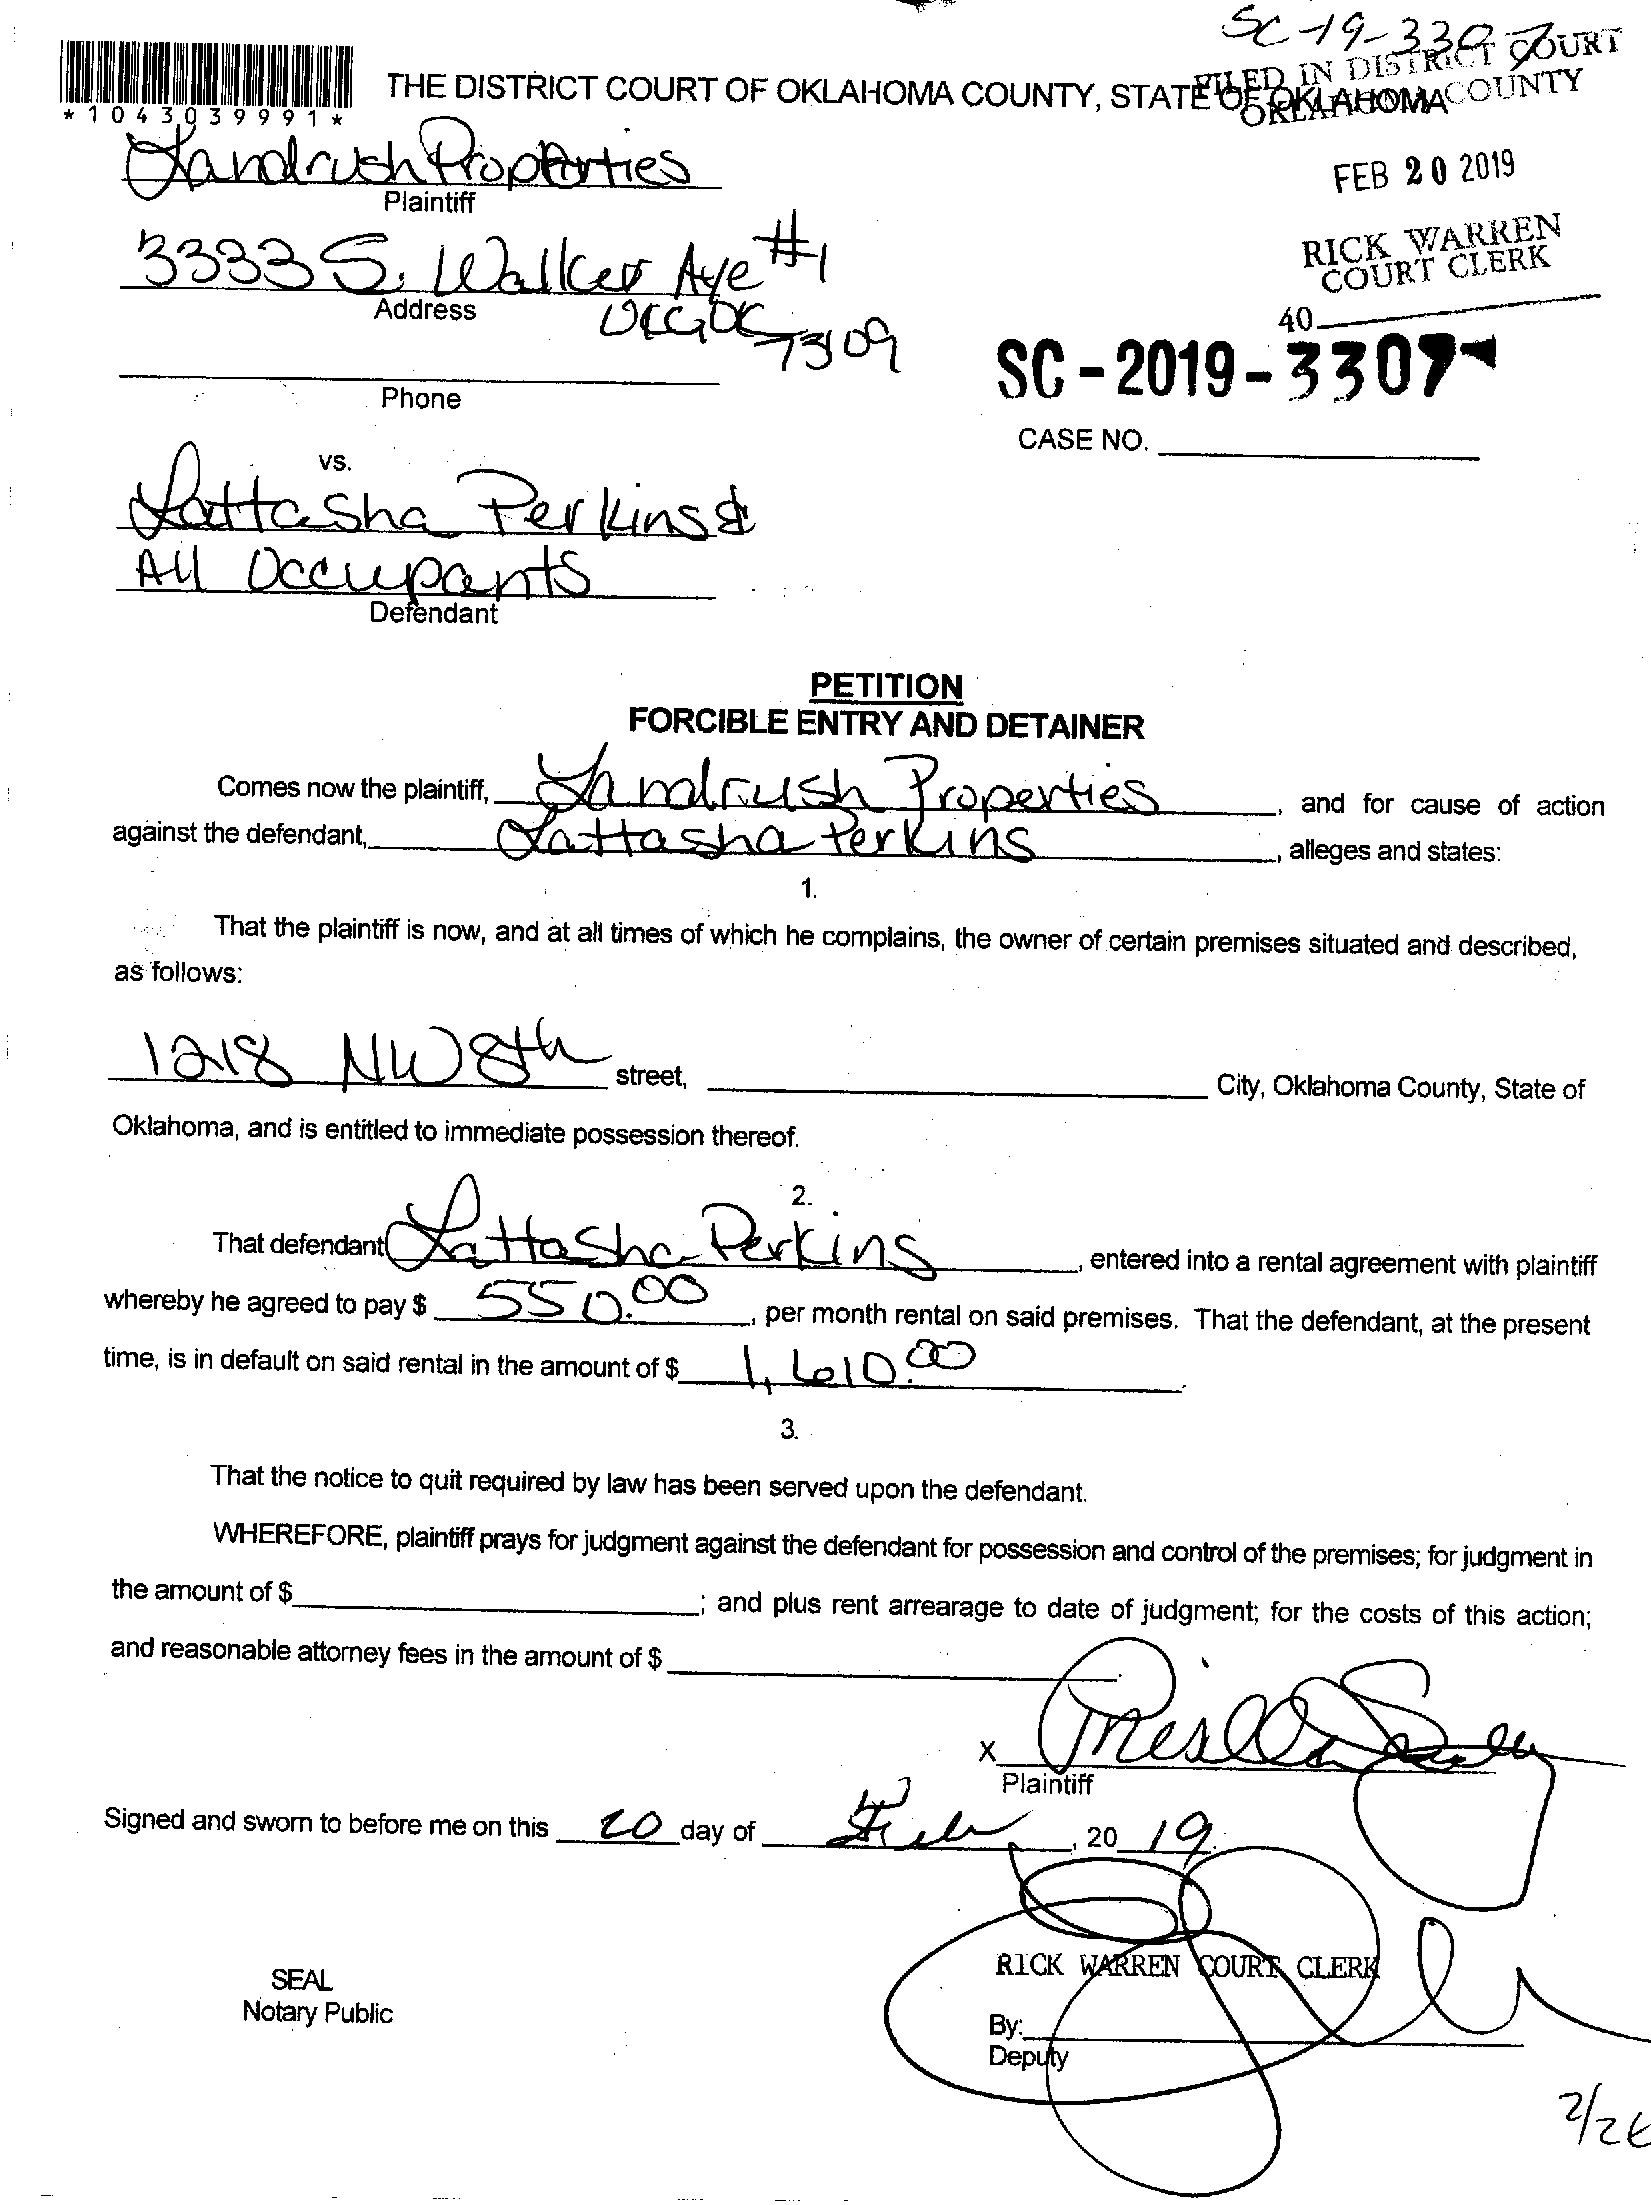 SC-19-3307
FILED IN DISTRICT COURT
OKLAHOMA COUNTY
THE DISTRICT COURT OF OKLAHOMA COUNTY, STATE OF OKLAHOMA
*1043039991*
FEB 20 2019
RICK WARREN
COURT CLERK
40
Landrush Properties
Plaintiff
3333 S. Walker Ave #1
Address
OKC OK 73109
Phone
SC-2019-3307
CASE NO.
vs.
Lattasha Perkins &
All Occupants
Defendant
PETITION
FORCIBLE ENTRY AND DETAINER
Comes now the plaintiff, Landrush Properties, and for cause of action
against the defendant, Lattasha Perkins, alleges and states:
1.
That the plaintiff is now, and at all times of which he complains, the owner of certain premises situated and described,
as follows:
1218 NW 8th street, City, Oklahoma County, State of
Oklahoma, and is entitled to immediate possession thereof.
2.
That defendant Lattasha Perkins, entered into a rental agreement with plaintiff
whereby he agreed to pay $ 550.00, per month rental on said premises. That the defendant, at the present
time, is in default on said rental in the amount of $ 1,610.00.
3.
That the notice to quit required by law has been served upon the defendant.
WHEREFORE, plaintiff prays for judgment against the defendant for possession and control of the premises; for judgment in
the amount of $ ; and plus rent arrearage to date of judgment; for the costs of this action;
and reasonable attorney fees in the amount of $
X
Plaintiff
Signed and sworn to before me on this 20 day of Feb, 20 19.
RICK WARREN COURT CLERK
SEAL
Notary Public
By:
Deputy
2/26